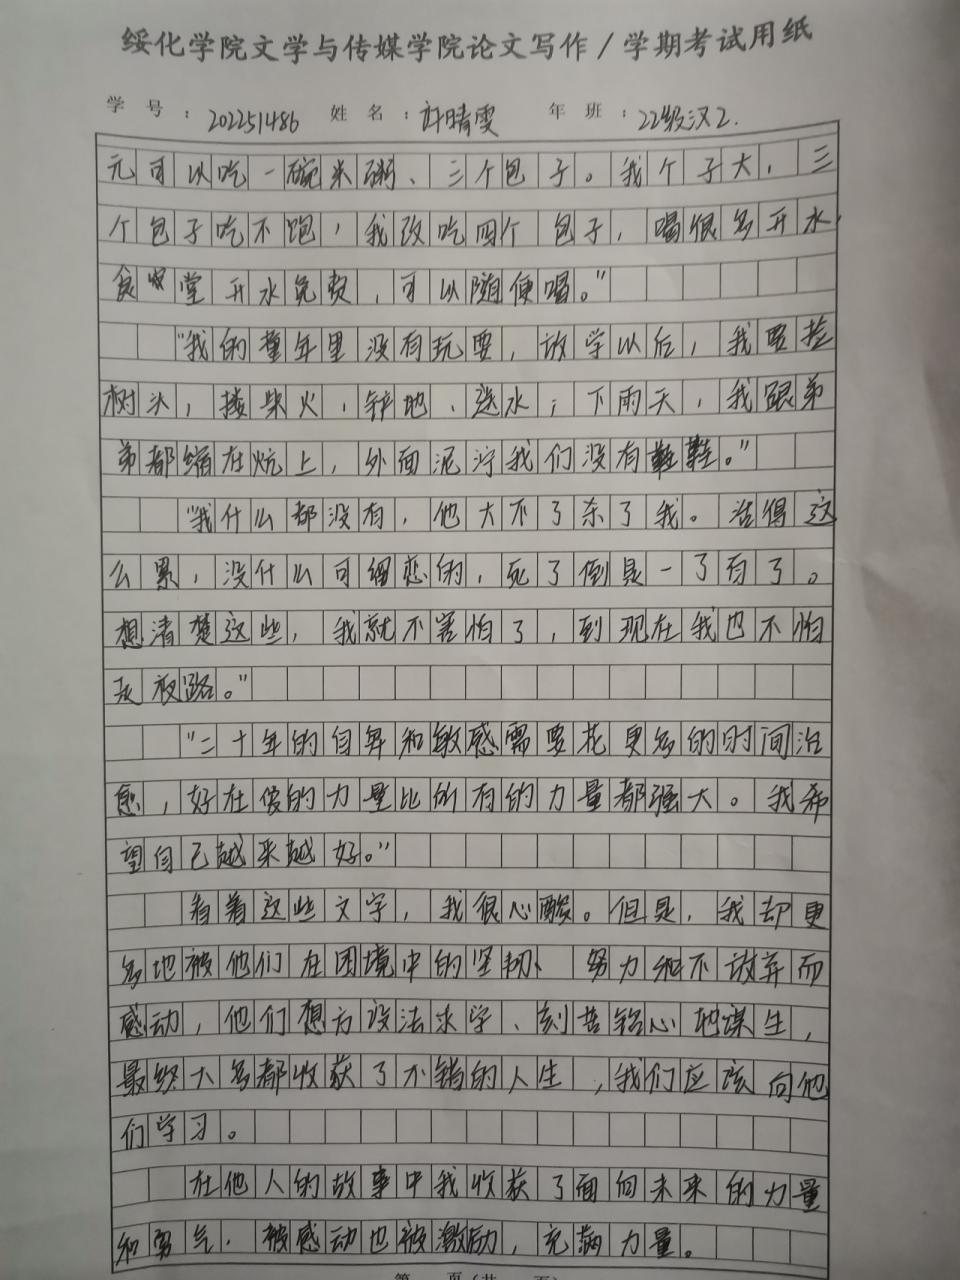 绥化学院文学与传媒学院论文写作/学期考试用纸
学号：202251486 姓名：许晴雯 年班：22级汉2.
元可以吃一碗米粥、三个包子。我个子大，三
个包子吃不饱，我改吃四个包子，喝很多开水，
食堂开水免费，可以随便喝。”
“我的童年里没有玩耍，放学以后，我要捡
树头，搂柴火，铲地、送水；下雨天，我跟弟
弟都缩在炕上，外面泥泞我们没有鞋鞋。”
“我什么都没有，他大不了杀了我。活得这
么累，没什么可留恋的，死了倒是一了百了。
想清楚这些，我就不害怕了，到现在我也不怕
走夜路。”
“二十年的自卑和敏感需要花更多的时间治
愈，好在爱的力量比所有的力量都强大。我希
望自己越来越好。”
看着这些文字，我很心酸。但是，我却更
多地被他们在困境中的坚韧、努力和不放弃而
感动，他们想方设法求学、刻苦铭心地谋生，
最终大多都收获了不错的人生，我们应该向他
们学习。
在他人的故事中我收获了面向未来的力量
和勇气，被感动也被激励，充满力量。
第 页(共 页)